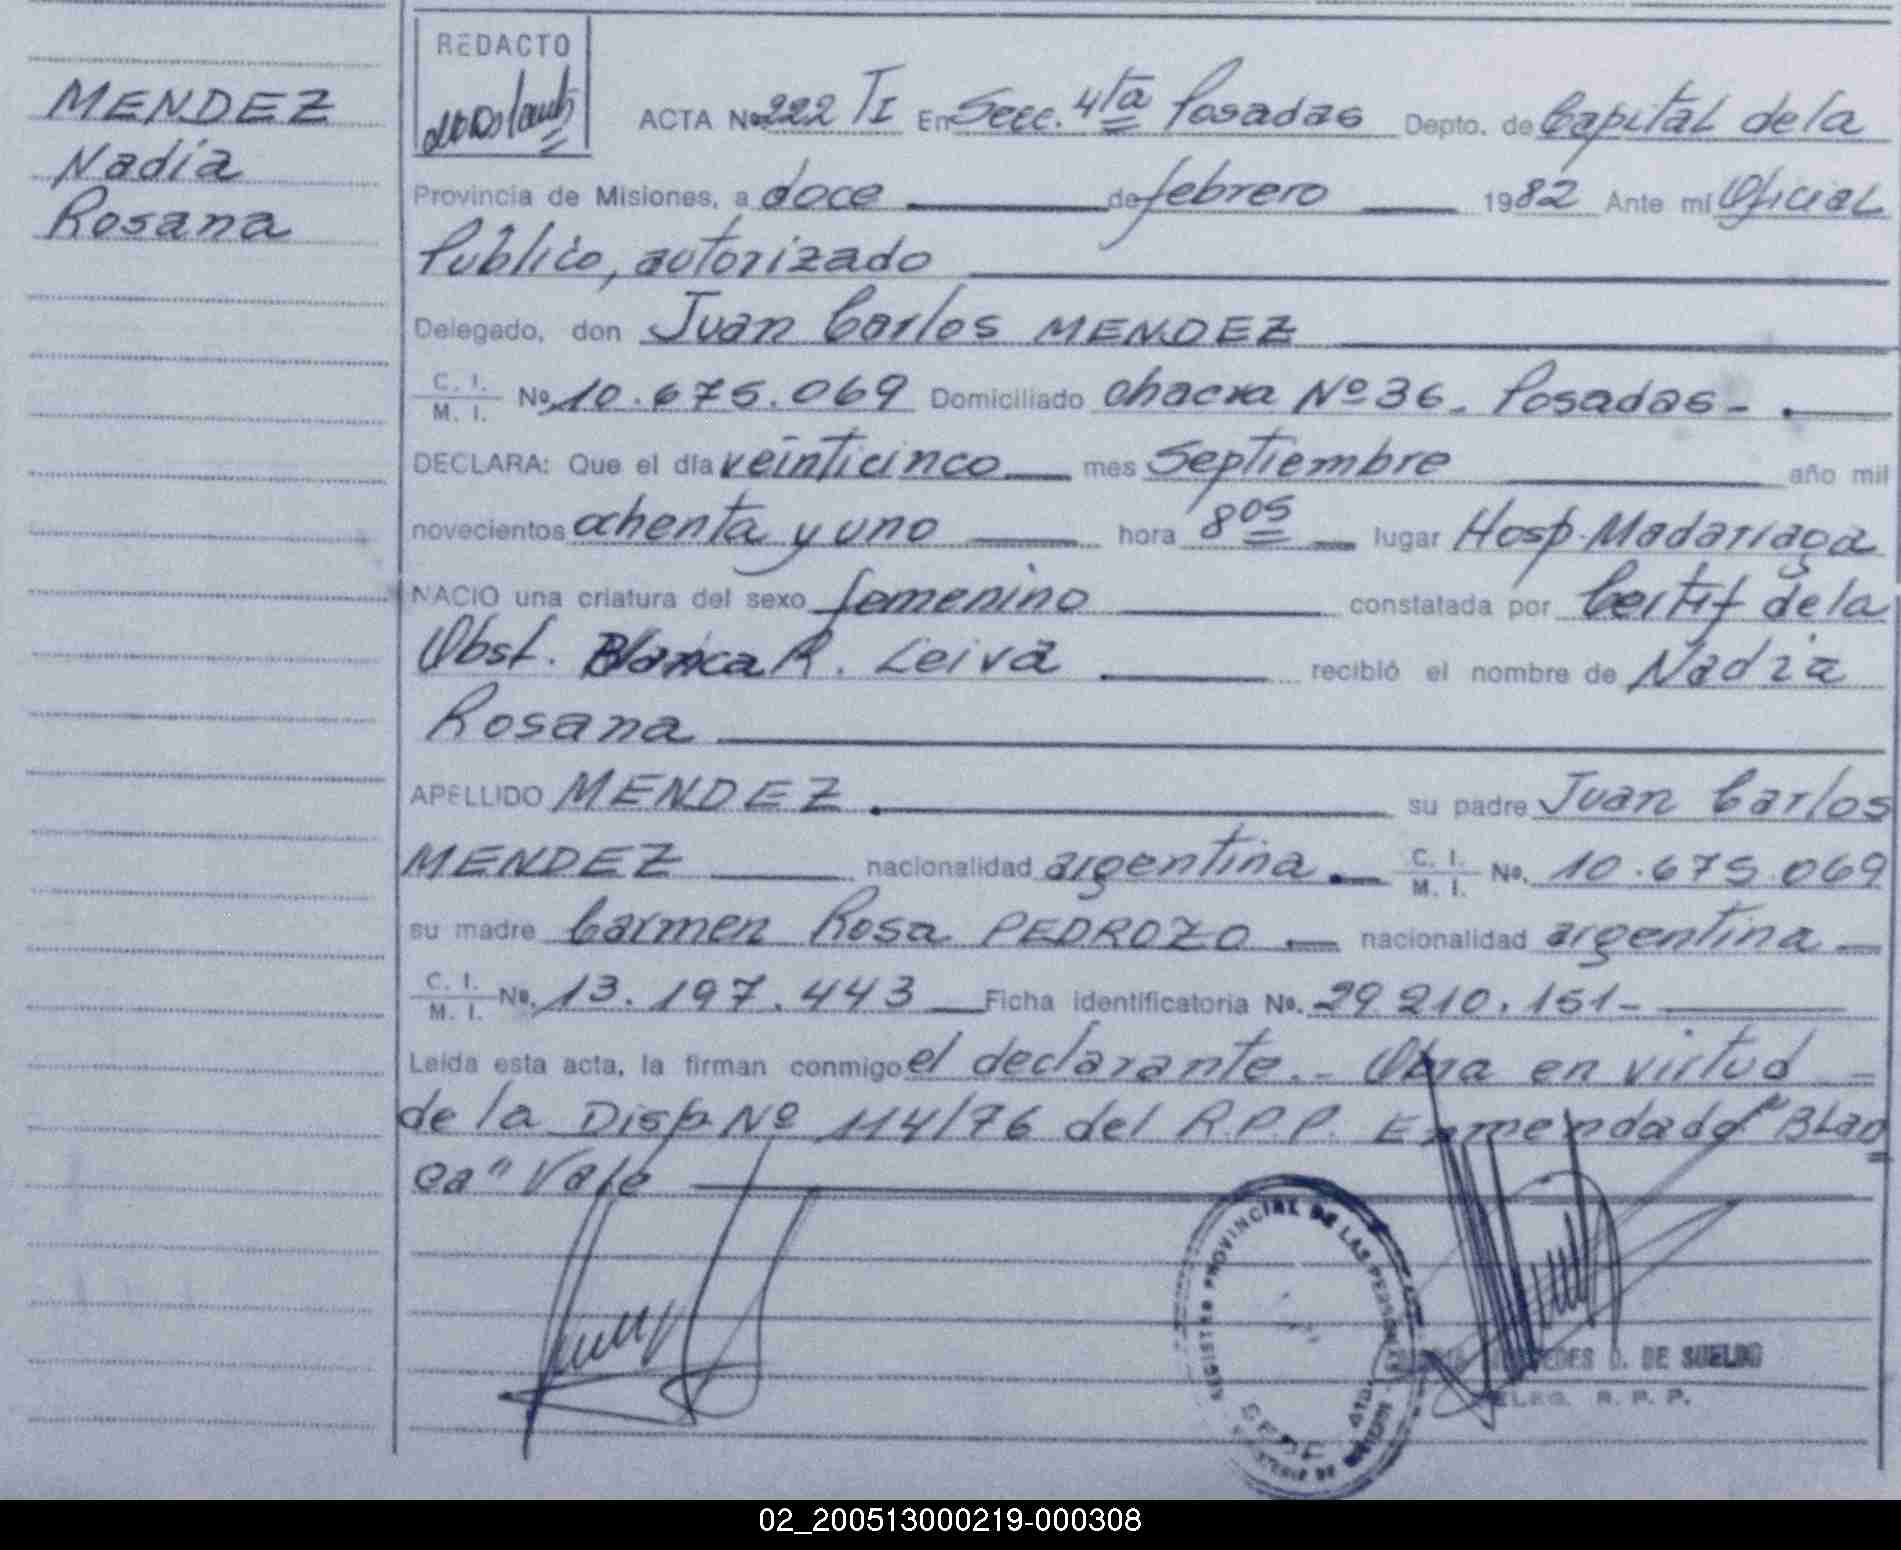 MENDEZ
Nadia
Rosana
REDACTO
ACTA Nº 222 TI En Secc. 4ta Posadas Depto. de Capital de la
Provincia de Misiones, a doce de febrero 1982 Ante mí Oficial
Público, autorizado
Delegado, don Juan Carlos MENDEZ
C. I. M. I. Nº 10.675.069 Domiciliado chacra Nº 36. Posadas-.
DECLARA: Que el día veinticinco mes Septiembre año mil
novecientos ochenta y uno hora 8 05 lugar Hosp. Madariaga
NACIO una criatura del sexo femenino constatada por Certif de la
Obst. Blanca R. Leiva recibió el nombre de Nadia
Rosana
APELLIDO MENDEZ su padre Juan Carlos
MENDEZ nacionalidad argentina C. I. M. I. Nº. 10.675.069
su madre Carmen Rosa PEDROZO nacionalidad argentina
C. I. M. I. Nº. 13.197.443 Ficha identificatoria Nº. 29.210.151-
Leída esta acta, la firman conmigo el declarante.- Obra en virtud
de la Disp. Nº 114/76 del R.P.P. Enmendado "Blan
ca" Vale
REGISTRO PROVINCIAL DE LAS PERSONAS
DE SUELDO
DELEG. R. P. P.
02_200513000219-000308